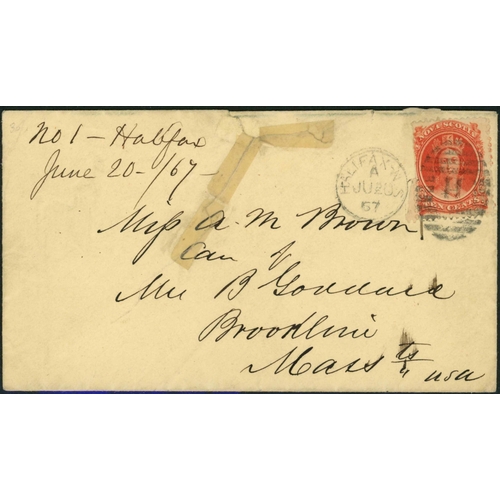 No 1 - Halifax
June 20 - /67 -
HALIFAX. N.S
A
JU 20
67
NOVA SCOTIA
TEN CENTS
Miss A. M. Brown
Care of
Mr B Goddard
Brookline
Mass ts/u USA